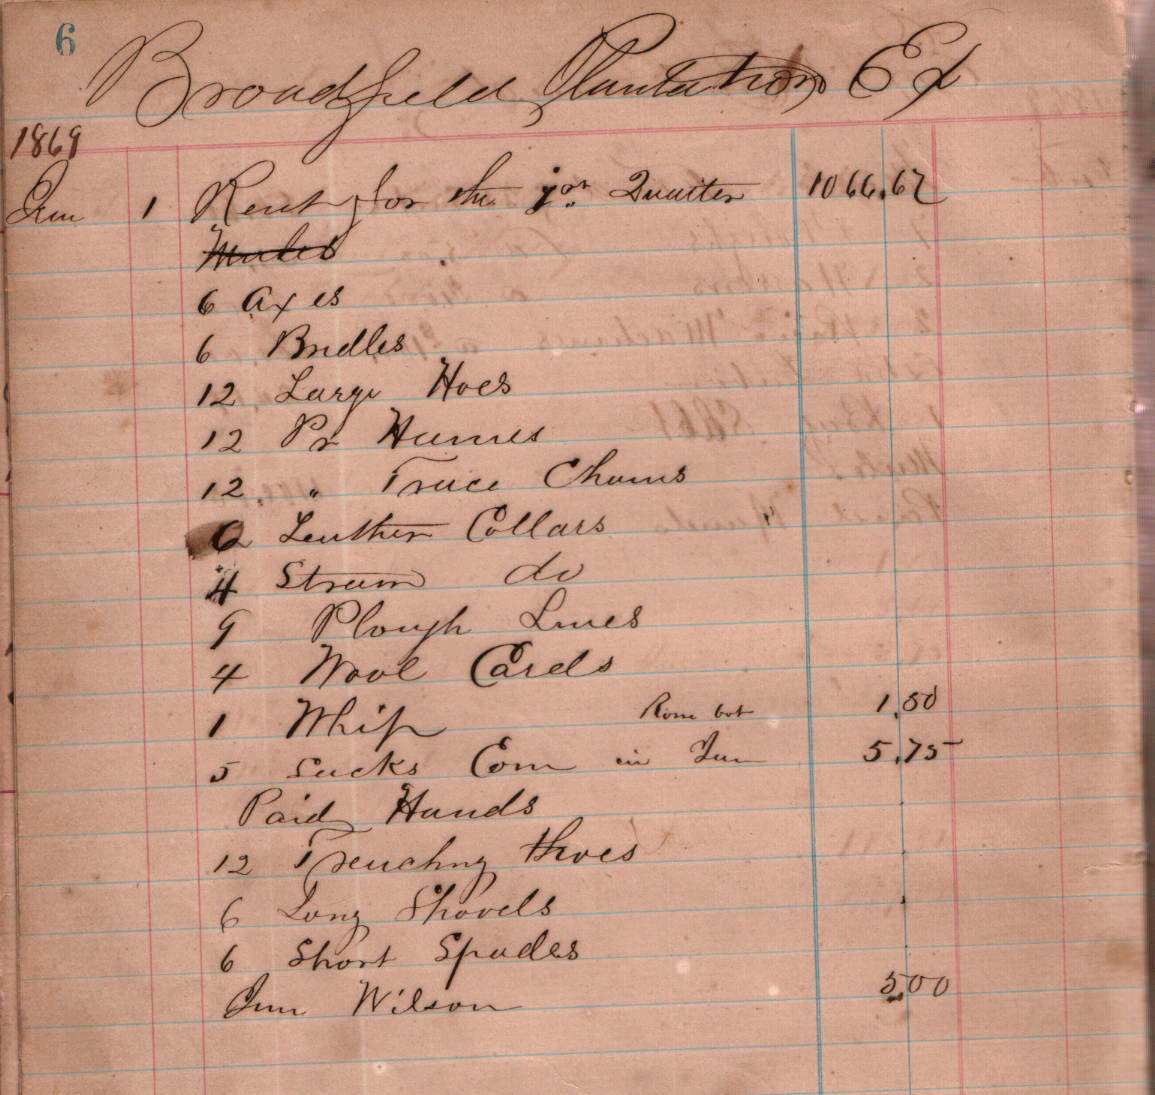 6
Broadfield Plantation Ex
1869
Jan 1 Rent for the 1st Quarter 1066.67
Mules
6 Axes
6 Bridles
12 Large Hoes
12 Pr Hames
12 " Trace Chains
6 Leather Collars
4 Straw do
9 Plough Lines
4 Wool Cards
1 Whip bot 1.50
5 Sacks Corn in Jan 5.75
Paid Hands
12 Trenching Hoes
6 Long Shovels
6 Short Spades
Jim Wilson 5.00